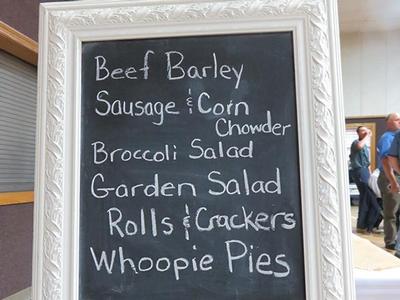 Beef Barley
Sausage & Corn
Chowder
Broccoli Salad
Garden Salad
Rolls & Crackers
Whoopie Pies